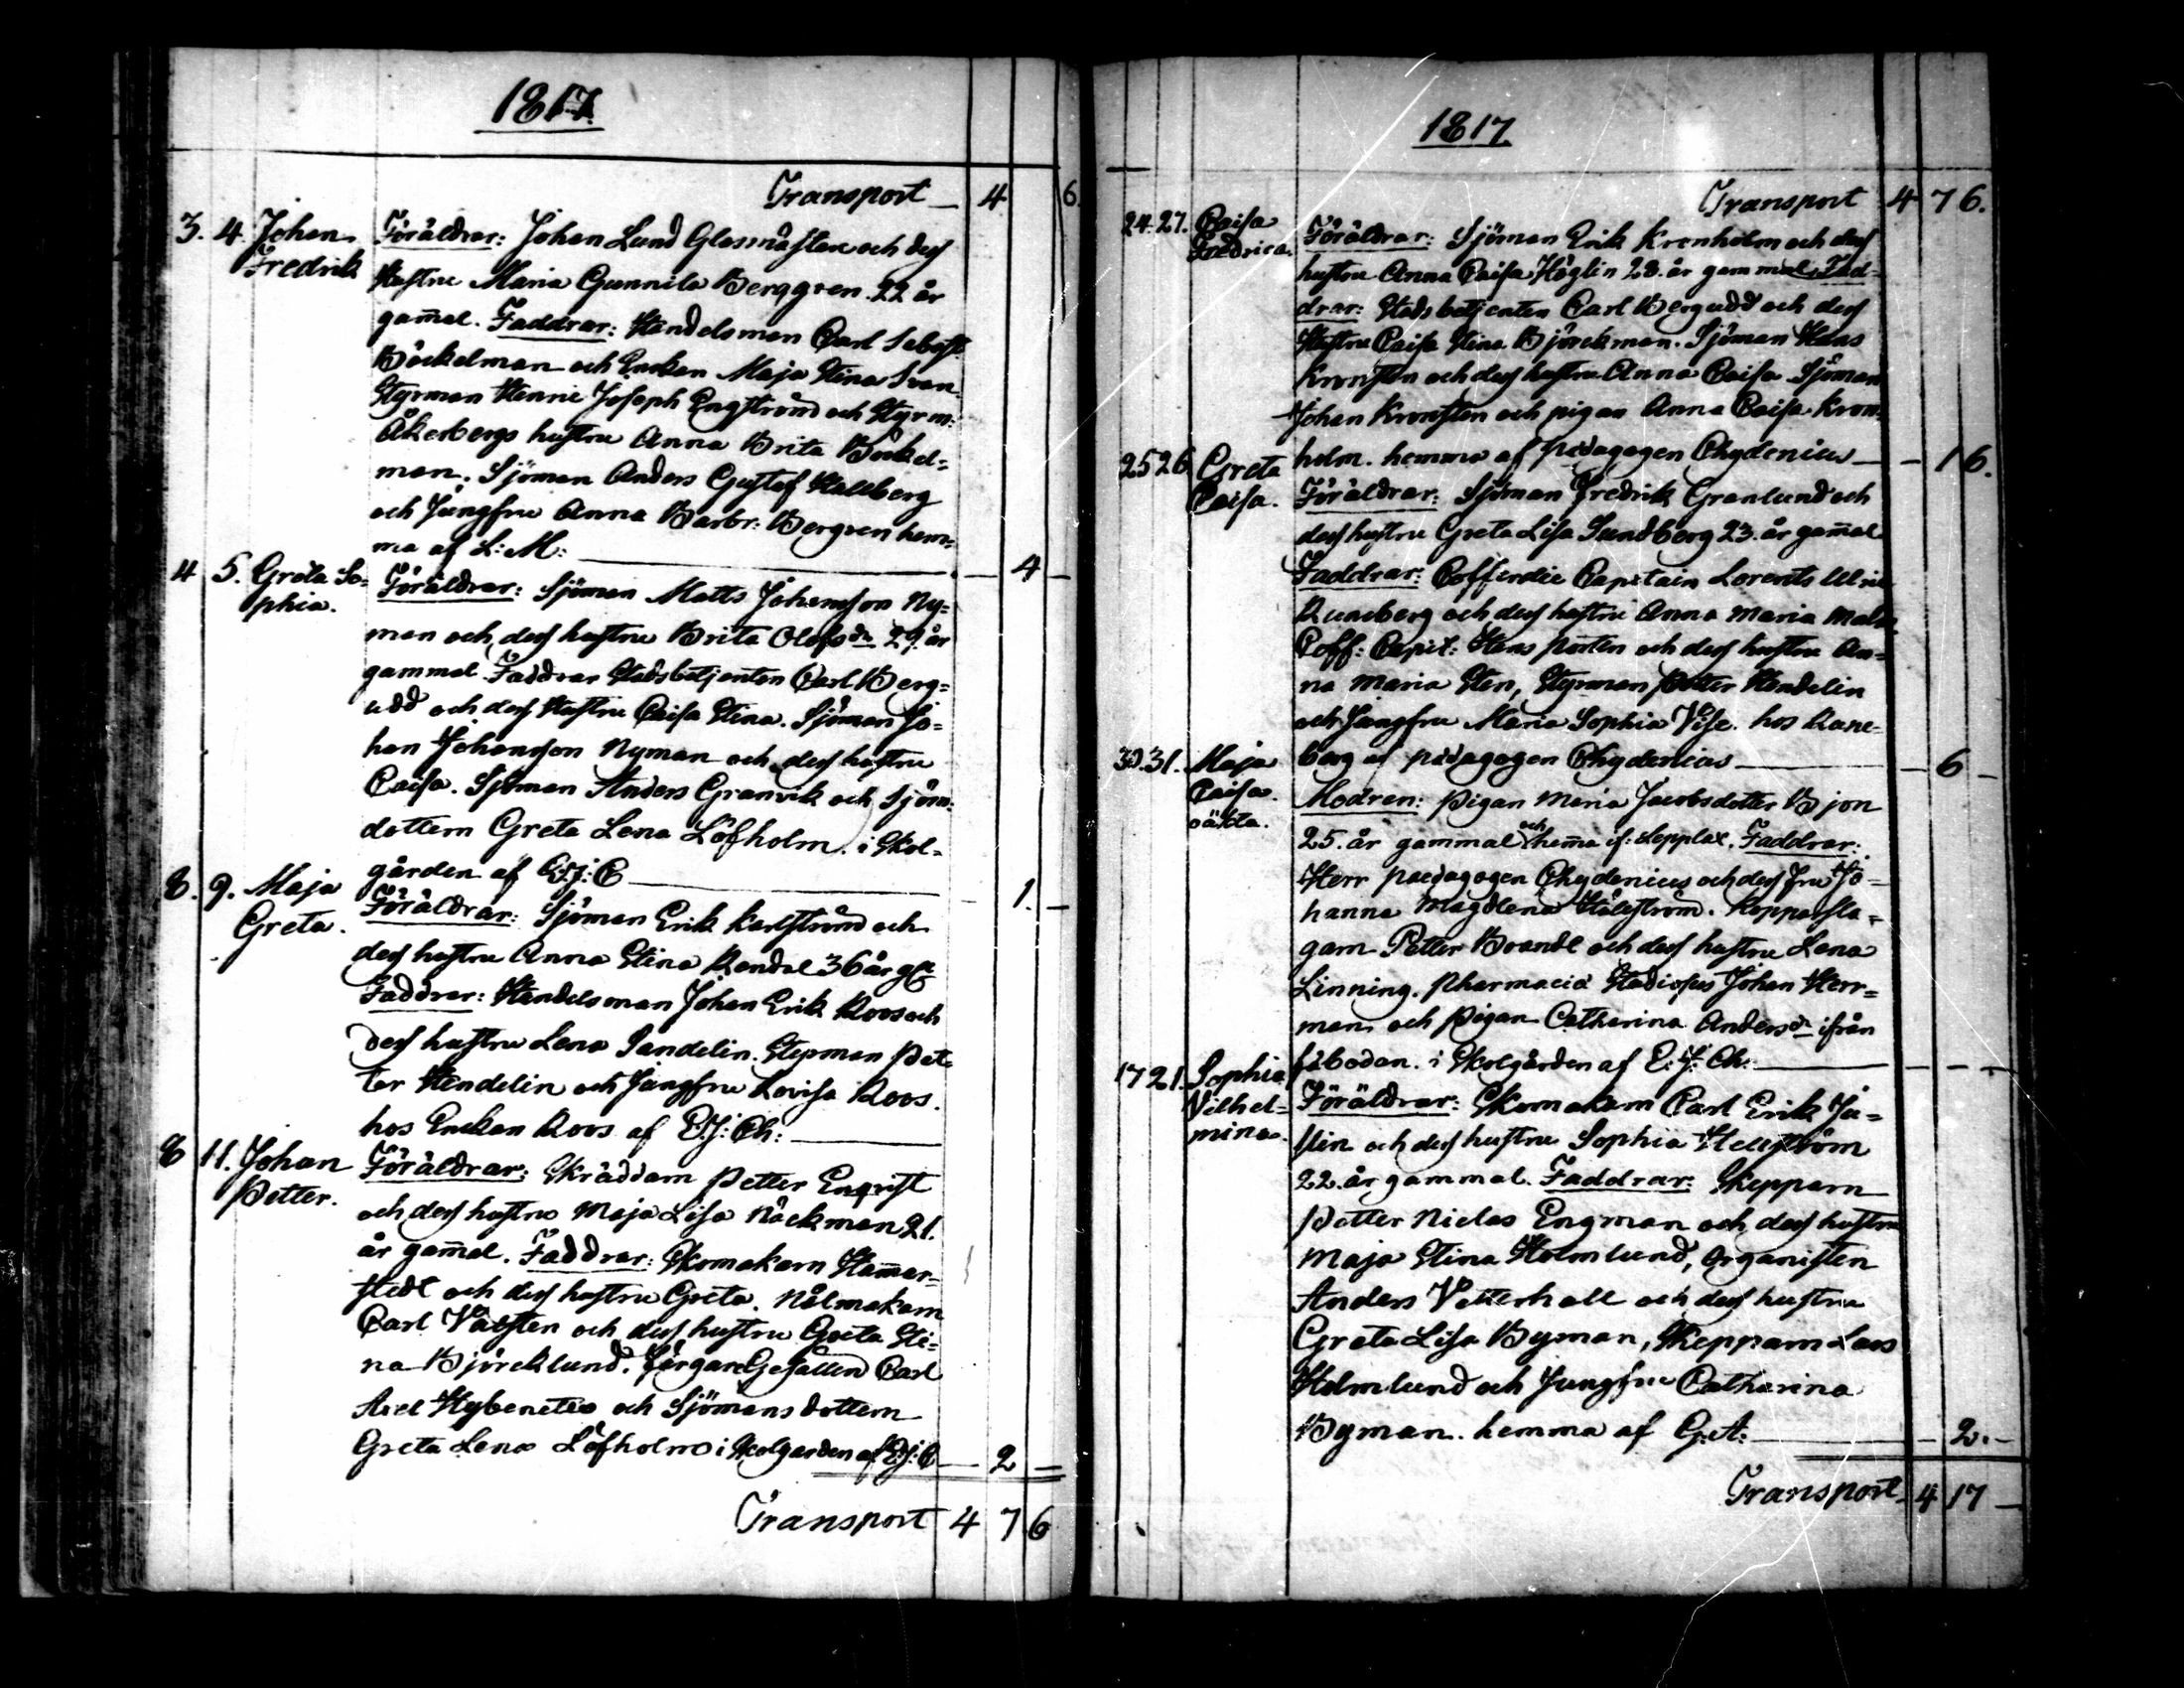 1817.
Transport 4 6.
3. 4. Johan Fredrik
Föräldrar: Johan Lund Glasmästare och dess
Hustru Maria Gunnila Berggren 22 år
gam̄al. Faddrar: Handelsman Carl Sebast
Böckelman och Enckan Maja Stina Svan
Styrman Henric Joseph Engström och Styrm:
Åkerbergs hustru Anna Brita Böckel=
man. Sjöman Anders Gustaf Hallberg
och Jungfru Anna Barbr: Bergren hem=
ma af L: M: — 4 —
4 5. Greta So=
phia.
Föräldrar: Sjöman Matts Johansson Ny=
man och dess hustru Brita Olofsdr 29 år
gammal Faddrar Stadsbetjenten Carl Berg=
udd och dess Hustru Caisa Stina. Sjöman Jo=
han Johansson Nyman och dess hustru
Caisa. Sjöman Anders Granvik och Sjöm:
dottern Greta Lena Löfholm. i Skol=
gården af E: J: C — 1. —
8. 9. Maja
Greta.
Föräldrar: Sjöman Erik Karlström och
dess hustru Anna Stina Randel 36 år
Faddrar: Handelsman Johan Erik Roos och
dess hustru Lena Sandelin. Styrman Pet=
ter Hendelin och Jungfru Lovisa Roos.
hos Enckan Roos af E. J: Ch:
8 11. Johan
Petter.
Föräldrar: Skräddarn Petter Enqvist
och dess hustru Maja Lisa Näckman 21.
år gam̄al. Faddrar: Skomakarn Ham̄ar=
stedt och dess hustru Greta. Nålmakarn
Carl Västen och dess hustru Greta Sti=
na Björcklund. Färgare Gesällen Carl
Axel Hybenette och Sjömans dottern
Greta Lena Löfholm i Skolgården af E: J: C — 2 —
Transport 4 7 6
1817.
Transport 4 7 6.
24. 27. Caisa
Fredrica.
Föräldrar: Sjöman Erik Kronholm och dess
hustru Anna Caisa Höglin 28. år gammal. Fad=
drar: Stadsbetjenten Carl Bergudd och dess
Hustru Caisa Stina Björckman. Sjöman Hans
Kronsten och dess hustru Anna Caisa Sjöman
Johan Kronsten och pigan Anna Caisa Kron=
holm. hemma af pædagogen Chydenius — 1 6.
25 26 Greta
Caisa.
Föräldrar: Sjöman Fredrik Granlund och
dess hustru Greta Lisa Sundberg 23. år gam̄al
Faddrar: Cofferdie Capitain Lorents Ulric
Runeberg och dess hustru Anna Maria Malm
Coff: Capit: Hans Porten och dess hustru An=
na Maria Sten, Styrman Petter Hendelin
och Jungfru Maria Sophia Vise. hos Rune=
berg af pædagogen Chydenius — 6 —
30. 31. Maja
Caisa.
oäkta.
Modren: Pigan Maria Jacobsdotter Bjon
25. år gammal och hem̄a if: Lepplax. Faddrar:
Herr pædagogen Chydenius och dess fru Jo=
hanna Magdlena Hålström. Kopparsla=
garn Petter Brandt och dess hustru Lena
Linning. Pharmaciæ Studiosus Johan Herr=
man och Pigan Catharina Andersdr ifrån
fäbodan. i Skolgården af E: J: Ch: — — —
17 21. Sophia
Vilhel=
mina.
Föräldrar: Skomakarn Carl Erik Ju=
slin och dess hustru Sophia Hellström
22. år gammal. Faddrar: Skepparn
Petter Niclas Engman och dess hustru
Maja Stina Holmlund, Organisten
Anders Vetterhall och dess hustru
Greta Lisa Byman, Skepparn Lars
Holmlund och Jungfru Catharina
Byman. hemma af G: A: — 2. —
Transport 4 17 —